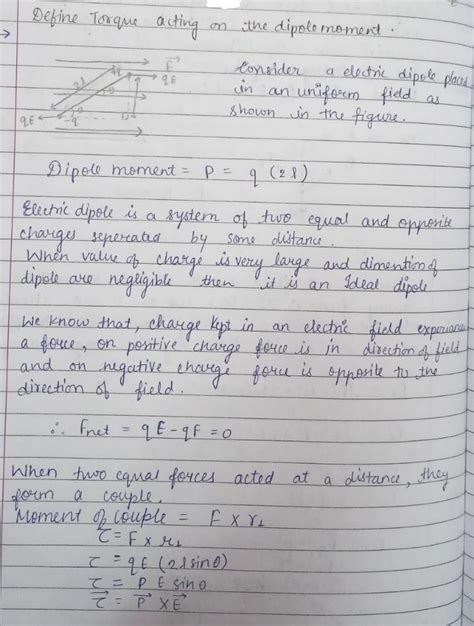 Define Torque acting on the dipole moment.
Consider a electric dipole placed
in an uniform field as
shown in the figure.
E
qE
2l
θ
qE
-q
Dipole moment = P = q (2l)
Electric dipole is a system of two equal and opposite
charges seperated by some distance.
When value of charge is very large and dimention of
dipole are negligible then it is an Ideal dipole
We know that, charge kept in an electric field experience
a force, on positive charge force is in direction of field
and on negative charge force is opposite to the
direction of field.
∴ Fnet = qE - qE = 0
When two equal forces acted at a distance, they
form a couple.
Moment of couple = F × r⊥
τ⃗ = F × r⊥
τ = qE (2l sinθ)
τ = P E sinθ
τ⃗ = P⃗ × E⃗